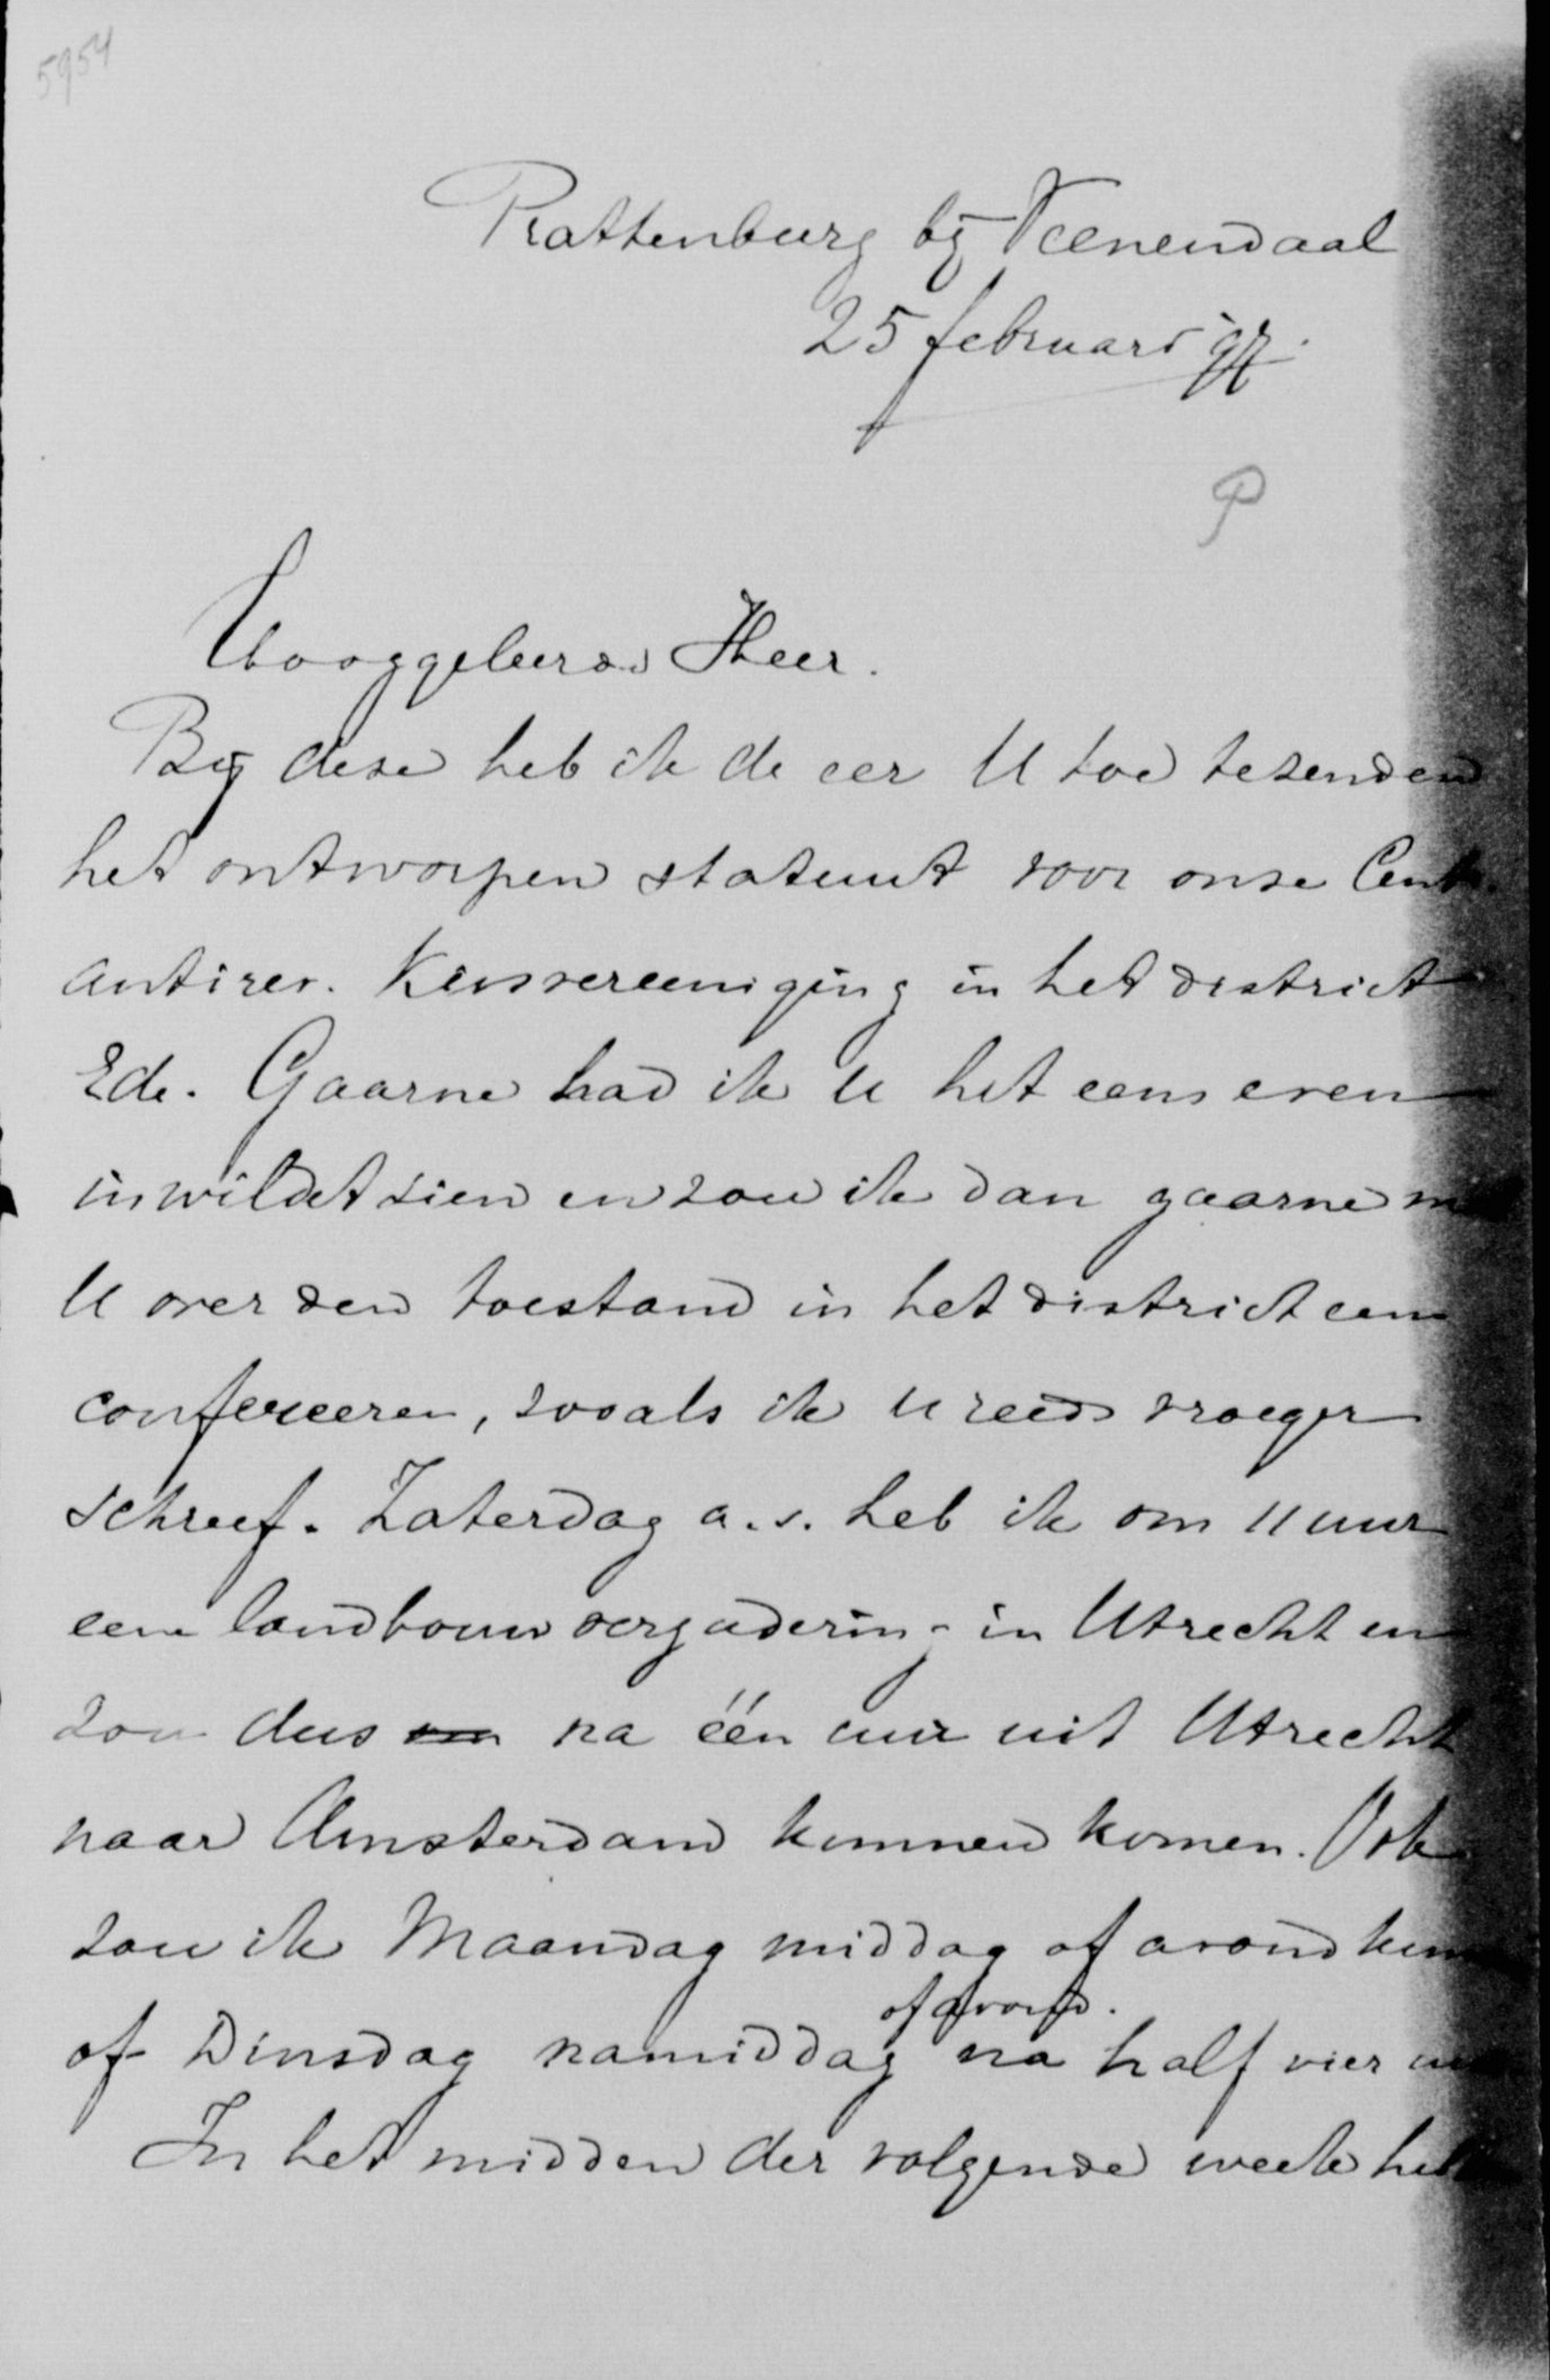 5954
Prattenburg bij Veenendaal
25 februari
P
Hooggeleerde Heer.
Bij deze heb ik de eer U toe te zenden
het ontworpen statuut voor onze Centr.
antirev. Kiesvereeniging in het district
Ede. Gaarne had ik U het eens even
in wildet zien en zou ik dan gaarne
U over den toestand in het district eens
confereeren, zooals ik U reeds vroeger
schreef. Zaterdag a.s. heb ik om 11 uur
een landbouw vergadering in Utrecht en
zou dus na één uur uit Utrecht
naar Amsterdam kunnen komen. Ook
zou ik Maandag middag of avond
of avond.
of Dinsdag namiddag na half vier
In het midden der volgende week